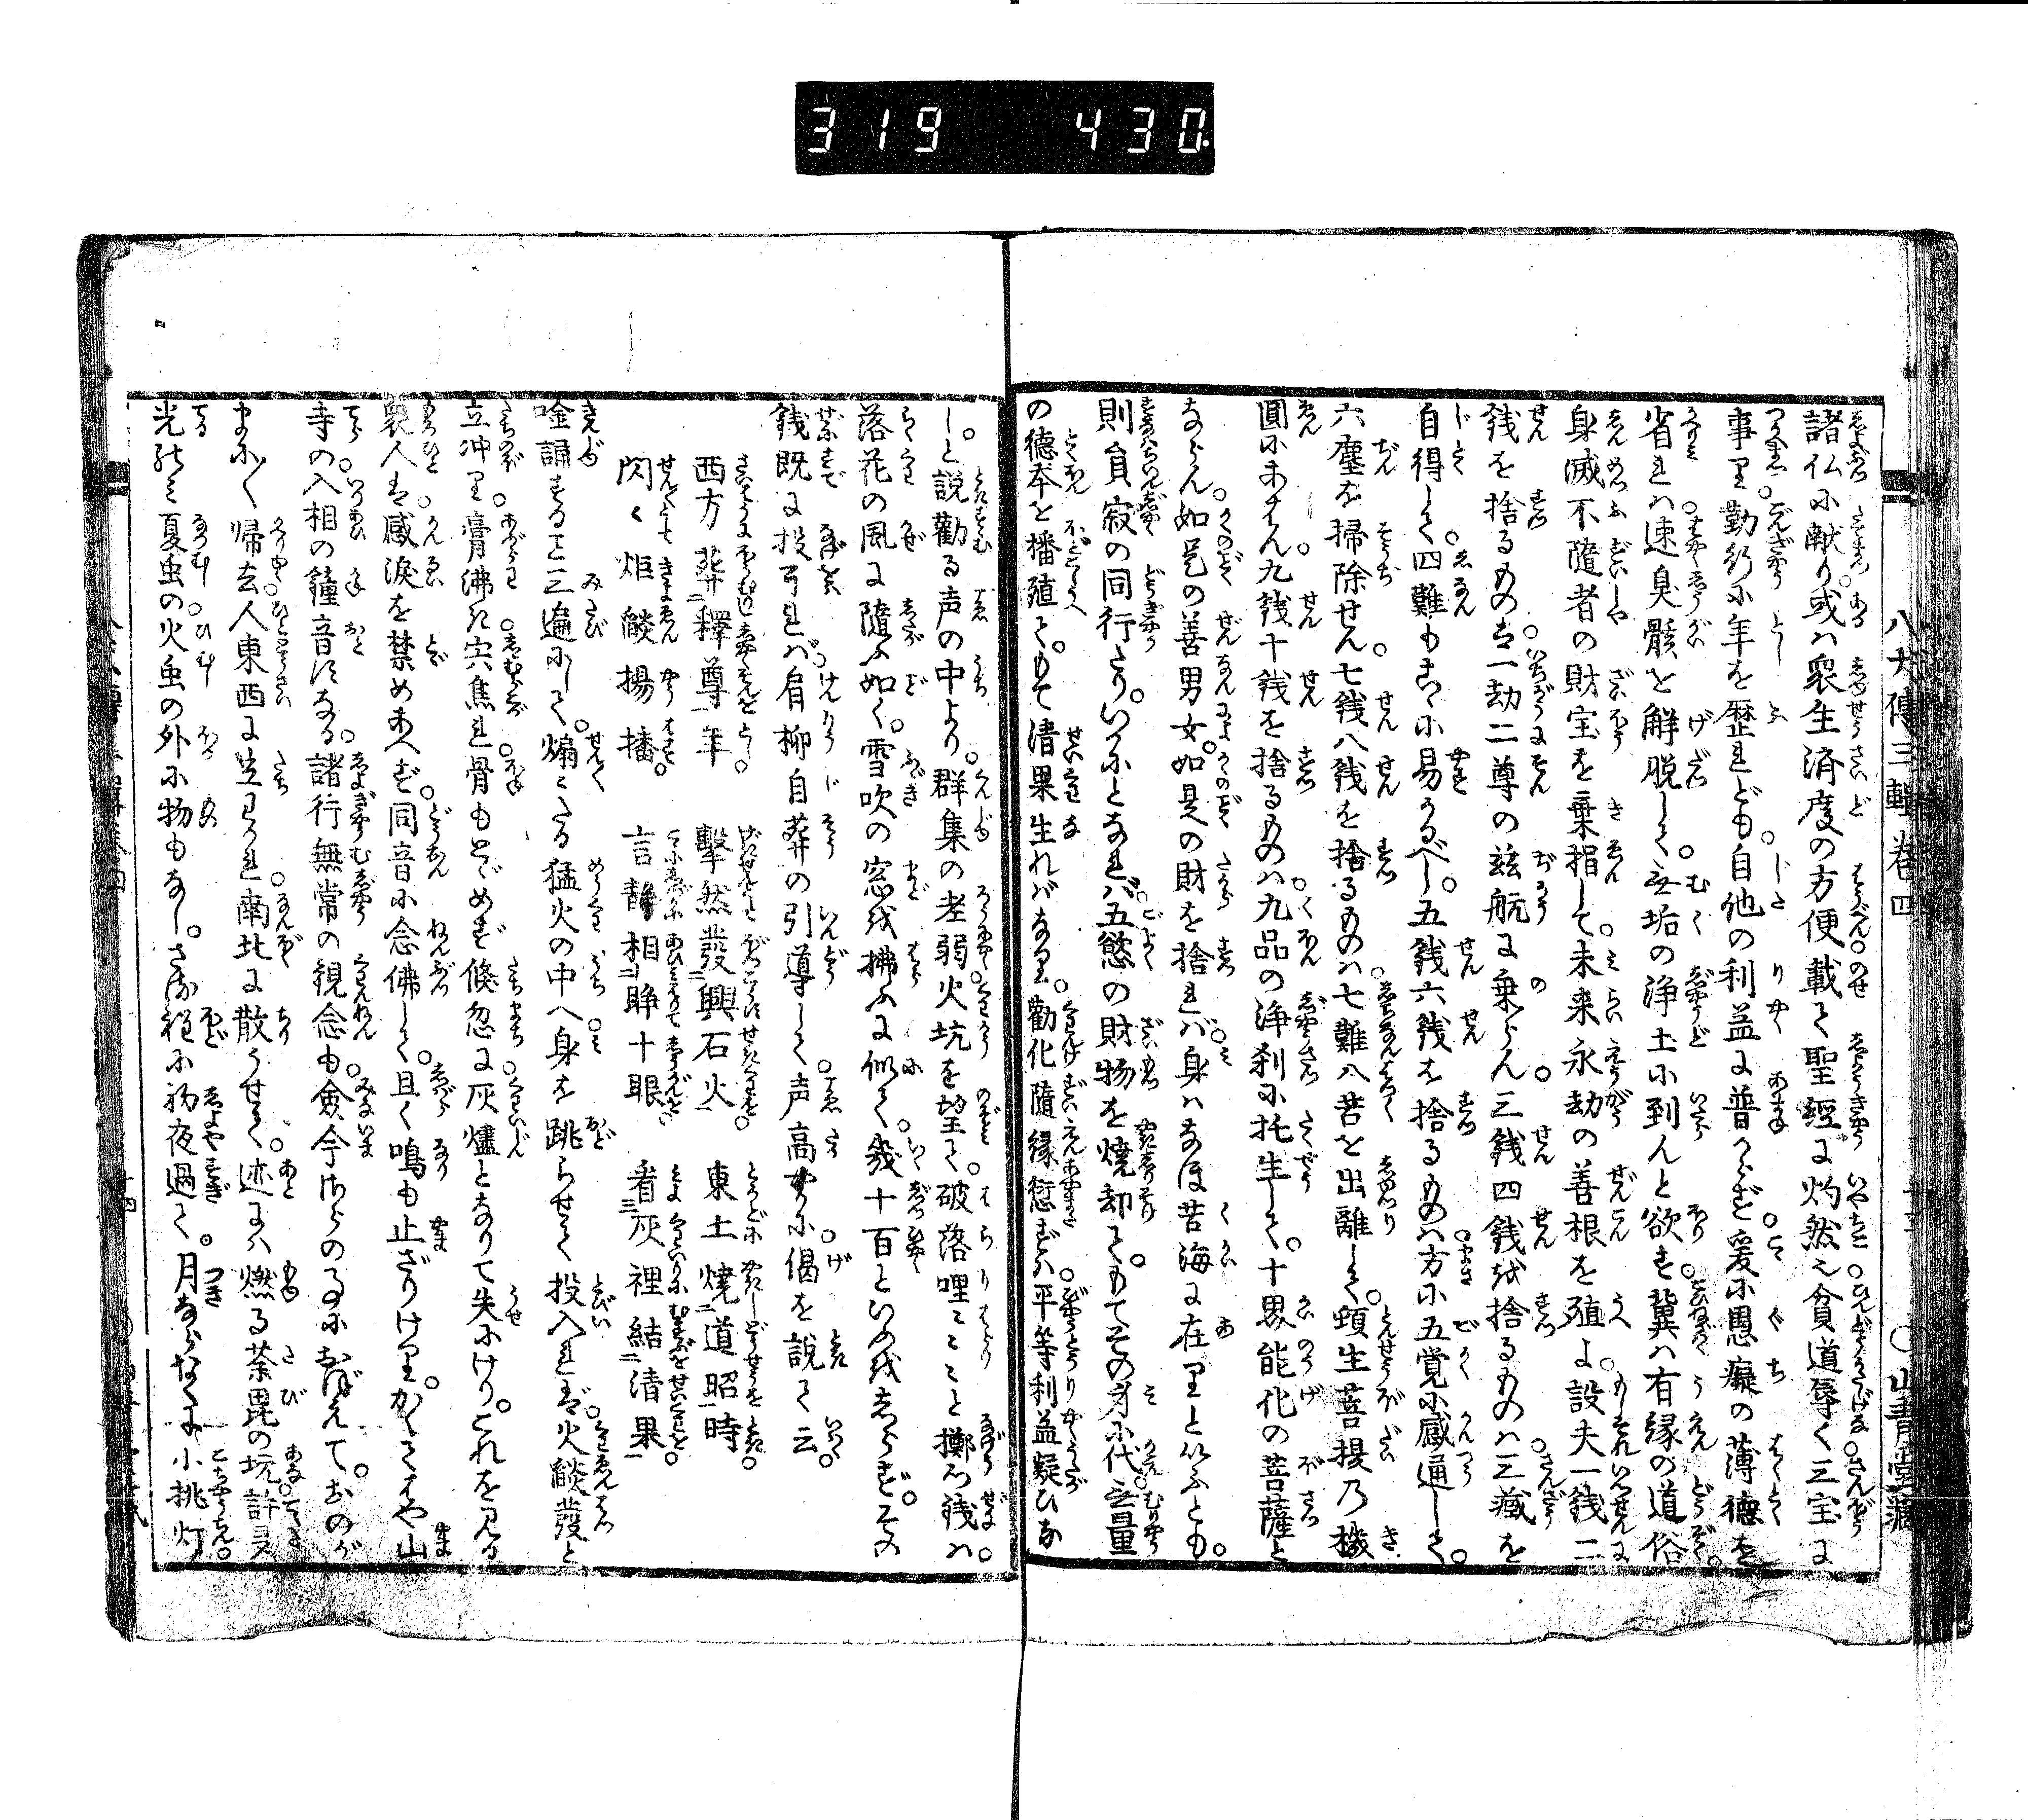 319 430
八犬傳三輯卷四
十三
○山青堂藏
諸仏に献り或は衆生済度の方便載て聖経に灼然し貧道辱く三宝に
事り勤行に年を歴れども自他の利益に普からず爰に愚癡の薄徳を
省れは速臭骸を解脱して无垢の浄土に到んと欲す冀は有縁の道俗
身滅不隨者の財宝を棄捐して未来永劫の善根を殖よ設夫一銭二
銭を捨るものは一劫二尊の茲航に乗らん三銭四銭を捨るものは三蔵を
自得して四難もまさに易かるべし五銭六銭を捨るものは方に五覚に感通して
六塵を掃除せん七銭八銭を捨るものは七難八苦を出離して頓生菩提乃機
圓にあはん九銭十銭を捨るものは九品の浄刹に托生して十界能化の菩薩と
ならん如是の善男女如是の財を捨れば身はなほ苦海に在りといふとも
則員寂の同行たりいかにとなれば五慾の財物を焼却てもてその身に代无量
の徳夲を播殖てもて清果生ればなり勸化隨縁愆ずは平等利益疑ひな
しと説勸る声の中より群集の老弱火坑を望て破落哩〻〻〻と擲る銭は
落花の風に隨ふ如く雪吹の窓を拂ふに似て幾十百といふをしらずその
銭既に投畢れば肩柳自葬の引導して声高やかに偈を説て云
西方葬釋尊年　撃然發興石火　東土焼道昭時
閃々炬燄揚播　言静相睜十眼　看灰裡結清果
唫誦すること三遍にして煽〻たる猛火の中へ身を跳らせて投入れば火燄發と
立冲り膏沸れ宍焦れ骨もとゞめず倐忽に灰燼となりて失にけりこれを見る
衆人は感涙を禁めあへず同音に念佛して且く鳴も止ざりけりかくてはや山
寺の入相の鐘音になる諸行無常の観念も僉今さらのことにおぼえておのが
まに〱帰去人東西に立わかれ南北に散うせて迹には燃る荼毘の坑許ヌ
光のミ夏虫の火虫の外に物もなしさる程に初夜過て月ならなくに小挑灯